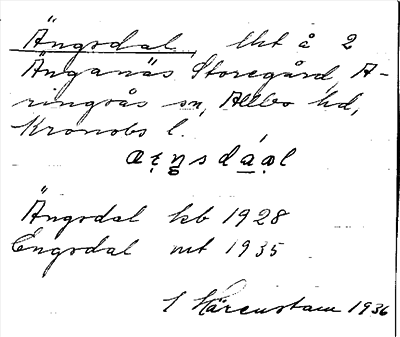 Ängsdal, lht å 2
Änganäs Storegård, A-
ringsås sn, Allbo hd,
Kronobs l.
Ängsdal kb 1928
Engsdal mt 1935
Härenstam 1936